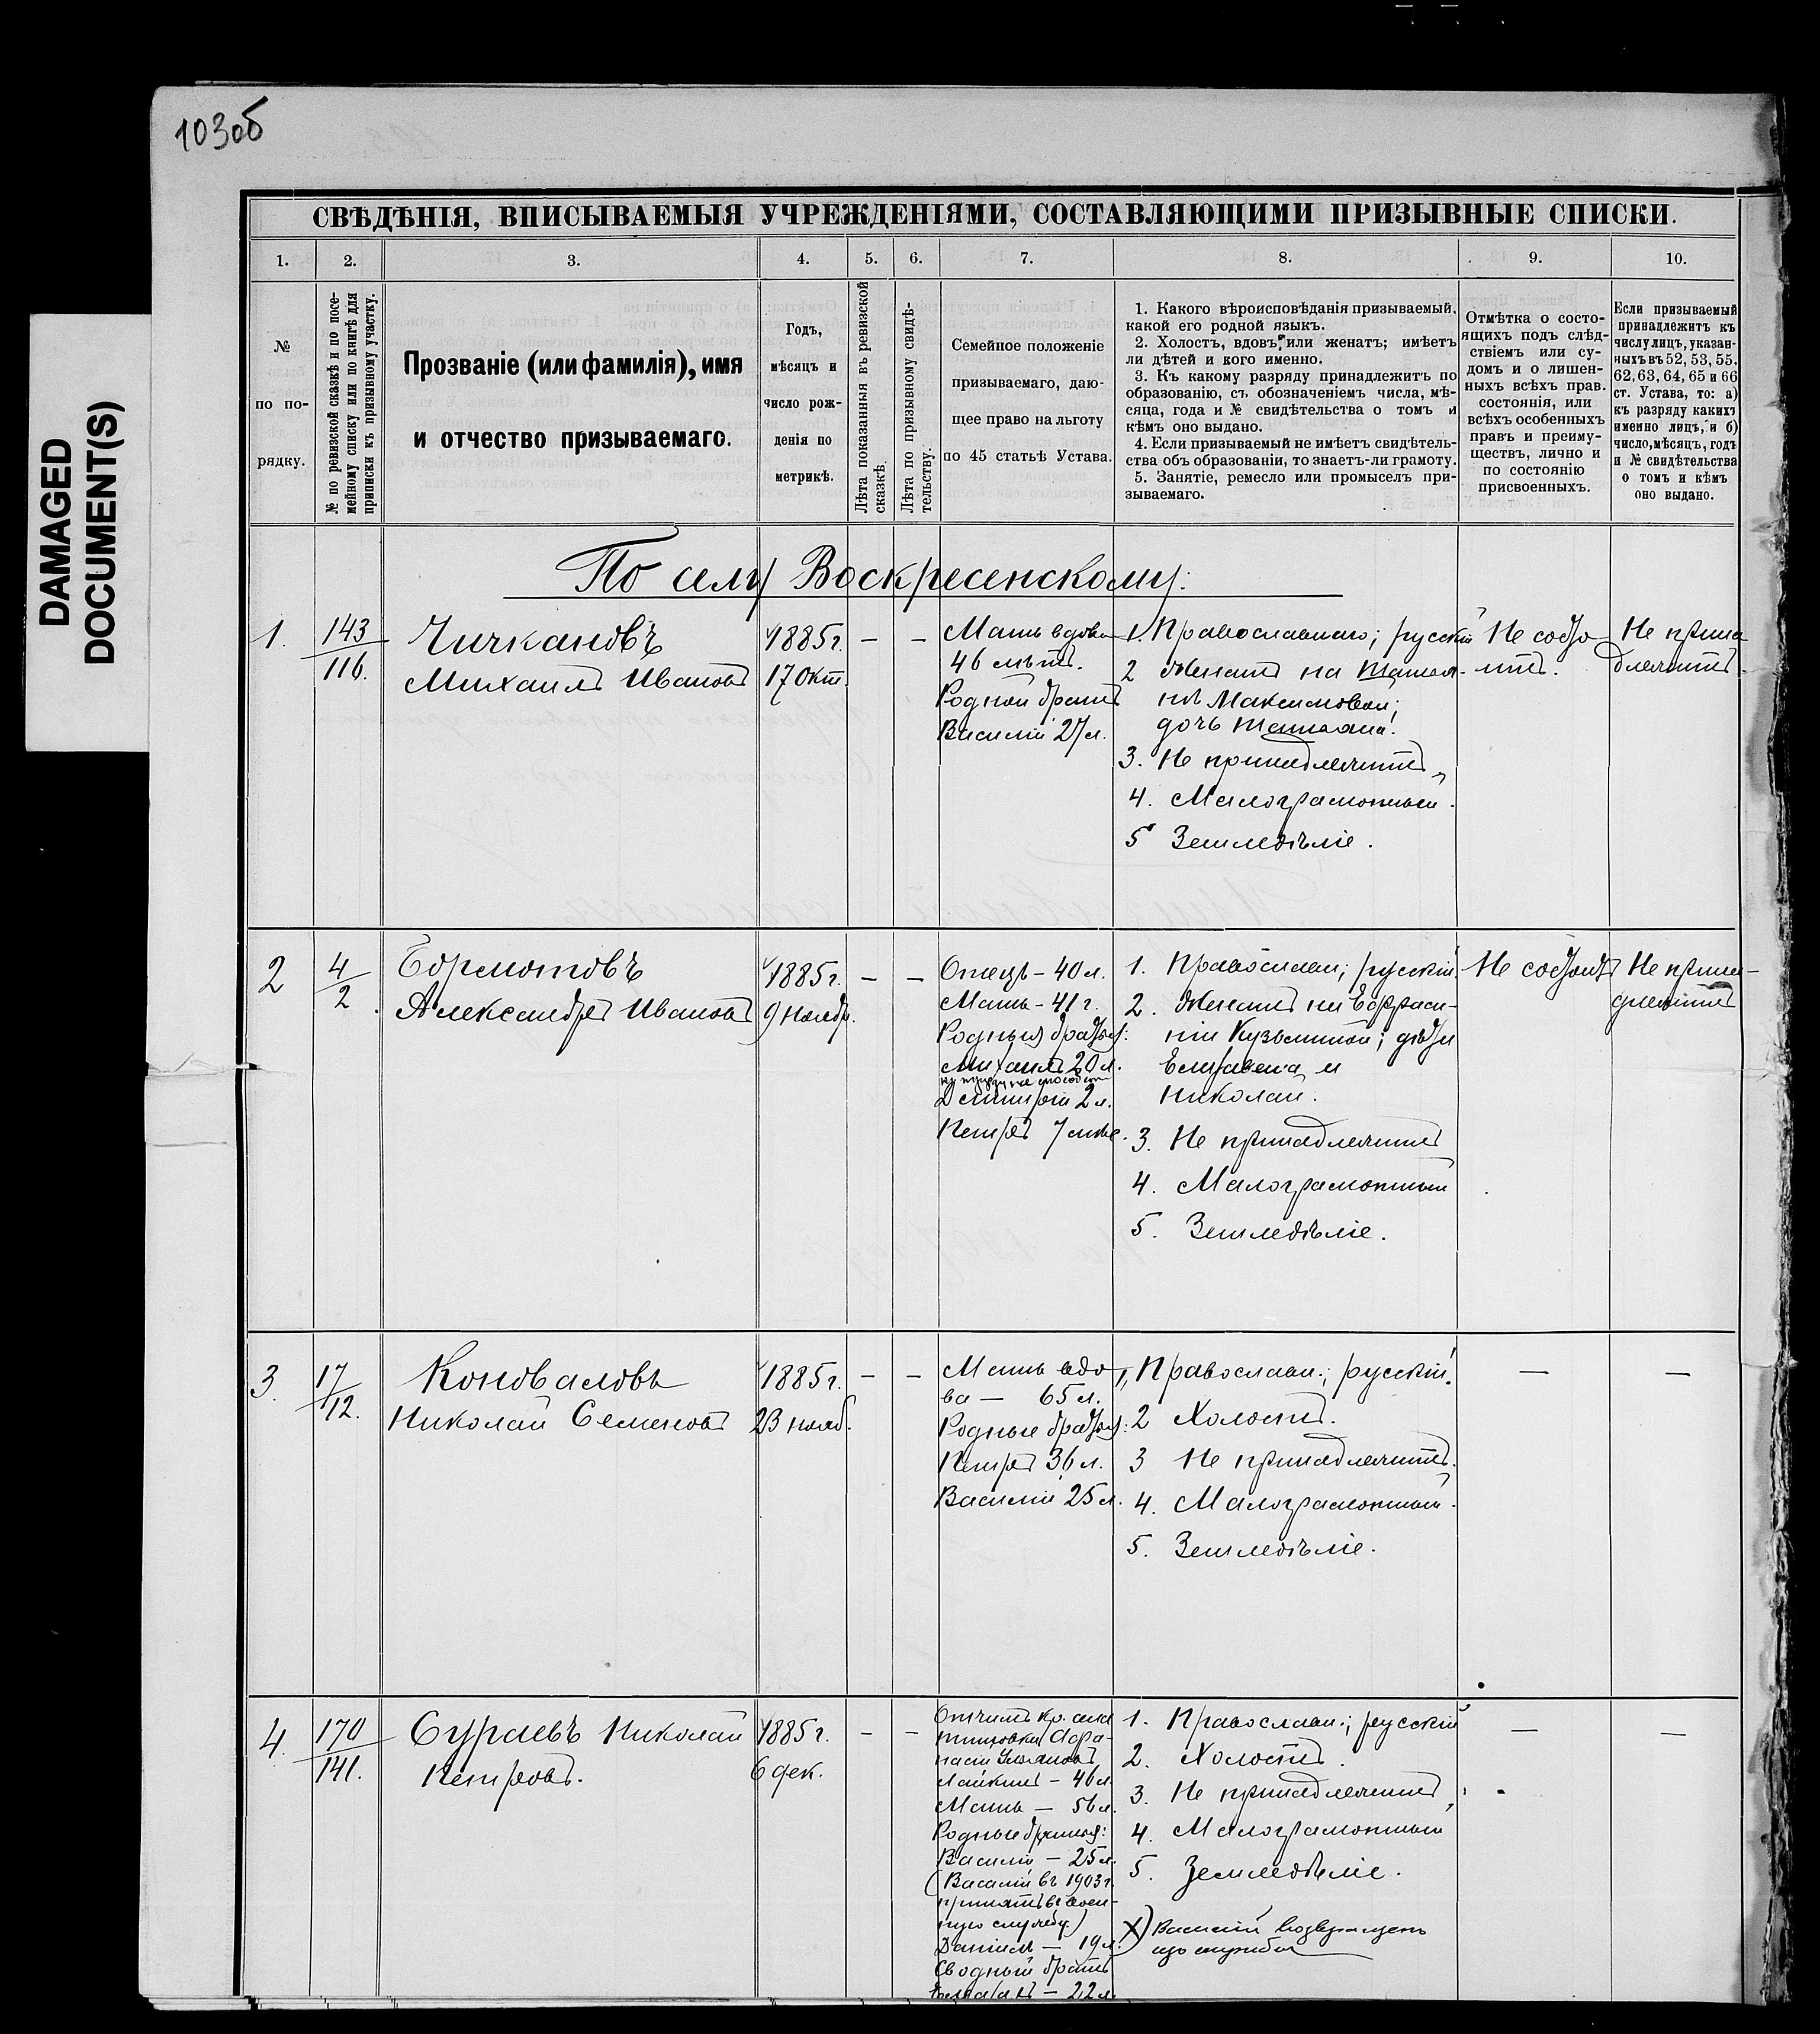 103об
DAMAGED
DOCUMENT(S)
СВѢДѢНІЯ, ВПИСЫВАЕМЫЯ УЧРЕЖДЕНІЯМИ, СОСТАВЛЯЮЩИМИ ПРИЗЫВНЫЕ СПИСКИ.
1. 2. 3. 4. 5. 6. 7. 8. 9. 10.
№
по по-
рядку.
№ по ревизской сказкѣ и по посе-
мейному списку или по книгѣ для
приписки къ призывному участку.
Прозваніе (или фамилія), имя
и отчество призываемаго.
Годъ,
мѣсяцъ и
число рож-
денія по
метрикѣ.
Лѣта показанныя въ ревизской
сказкѣ.
Лѣта по призывному свидѣ-
тельству.
Семейное положеніе
призываемаго, даю-
щее право на льготу
по 45 статьѣ Устава.
1. Какого вѣроисповѣданія призываемый,
какой его родной языкъ.
2. Холостъ, вдовъ, или женатъ; имѣетъ
ли дѣтей и кого именно.
3. Къ какому разряду принадлежитъ по
образованію, съ обозначеніемъ числа, мѣ-
сяца, года и № свидѣтельства о томъ и
кѣмъ оно выдано.
4. Если призываемый не имѣетъ свидѣтель-
ства объ образованіи, то знаетъ-ли грамоту.
5. Занятіе, ремесло или промыселъ при-
зываемаго.
Отмѣтка о состо-
ящихъ подъ слѣд-
ствіемъ или су-
домъ и о лишен-
ныхъ всѣхъ прав.
состоянія, или
всѣхъ особенныхъ
правъ и преиму-
ществъ, лично и
по состоянію
присвоенныхъ.
Если призываемый
принадлежитъ къ
числу лицъ, указан-
ныхъ въ 52, 53, 55.
62, 63, 64, 65 и 66
ст. Устава, то: а)
къ разряду какихъ
именно лицъ, и б)
число, мѣсяцъ, годъ
и № свидѣтельства
о томъ и кѣмъ
оно выдано.
По селу Воскресенскому:
1.
143
116.
Чичкановъ
Михаилъ Ивановъ
1885г.
17 Окт.
—
—
Мать вдова
46 лѣтъ.
Родной братъ
Василій 27 л.
1. Православнаго; русскій
2 Женатъ на Татья-
нѣ Максимовой;
дочь Татьяна.
3. Не принадлежитъ
4. Малограмотный.
5 Земледѣліе.
Не состо-
итъ.
Не прина-
длежитъ.
2
4
2.
Бормотовъ
Александръ Ивановъ
1885г.
9 Ноябр.
—
—
Отецъ - 40 л.
Мать - 41 г.
Родныя братья:
Михаилъ 20 л.
Димитрій 2 л.
Петръ 7
1. Православн.; русскій.
2. Женатъ на Ефраси-
ніи Кузьминой; дѣти
Елизавета и
Николай.
3. Не принадлежитъ
4. Малограмотный
5. Земледѣліе.
Не состоитъ
Не прина-
длежитъ
3.
17
12.
Коноваловъ
Николай Семеновъ
1885г.
23 нояб.
—
—
Мать вдо-
ва — 65 л.
Родные братья:
Петръ 36 л.
Василій 25 л.
1. Православн.; русскій.
2 Холостъ.
3 Не принадлежитъ.
4. Малограмотный.
5. Земледѣліе.
—
—
4.
170
141.
Сураевъ Николай
Петровъ.
1885г.
6 дек.
—
—
Отчимъ кр.
Афа-
насій
Лайкинъ - 46 л.
Мать — 56 л.
Родные братья:
Василій — 25 л.
(Василій въ 1903 г.
принятъ въ воен-
ную службу)
Даніилъ — 19 л.
Сводный братъ
— 22 л.
1. Православн.; русскій
2. Холостъ.
3. Не принадлежитъ,
4. Малограмотный
5. Земледѣліе.
X) Василій возвращенъ
изъ службы
—
—